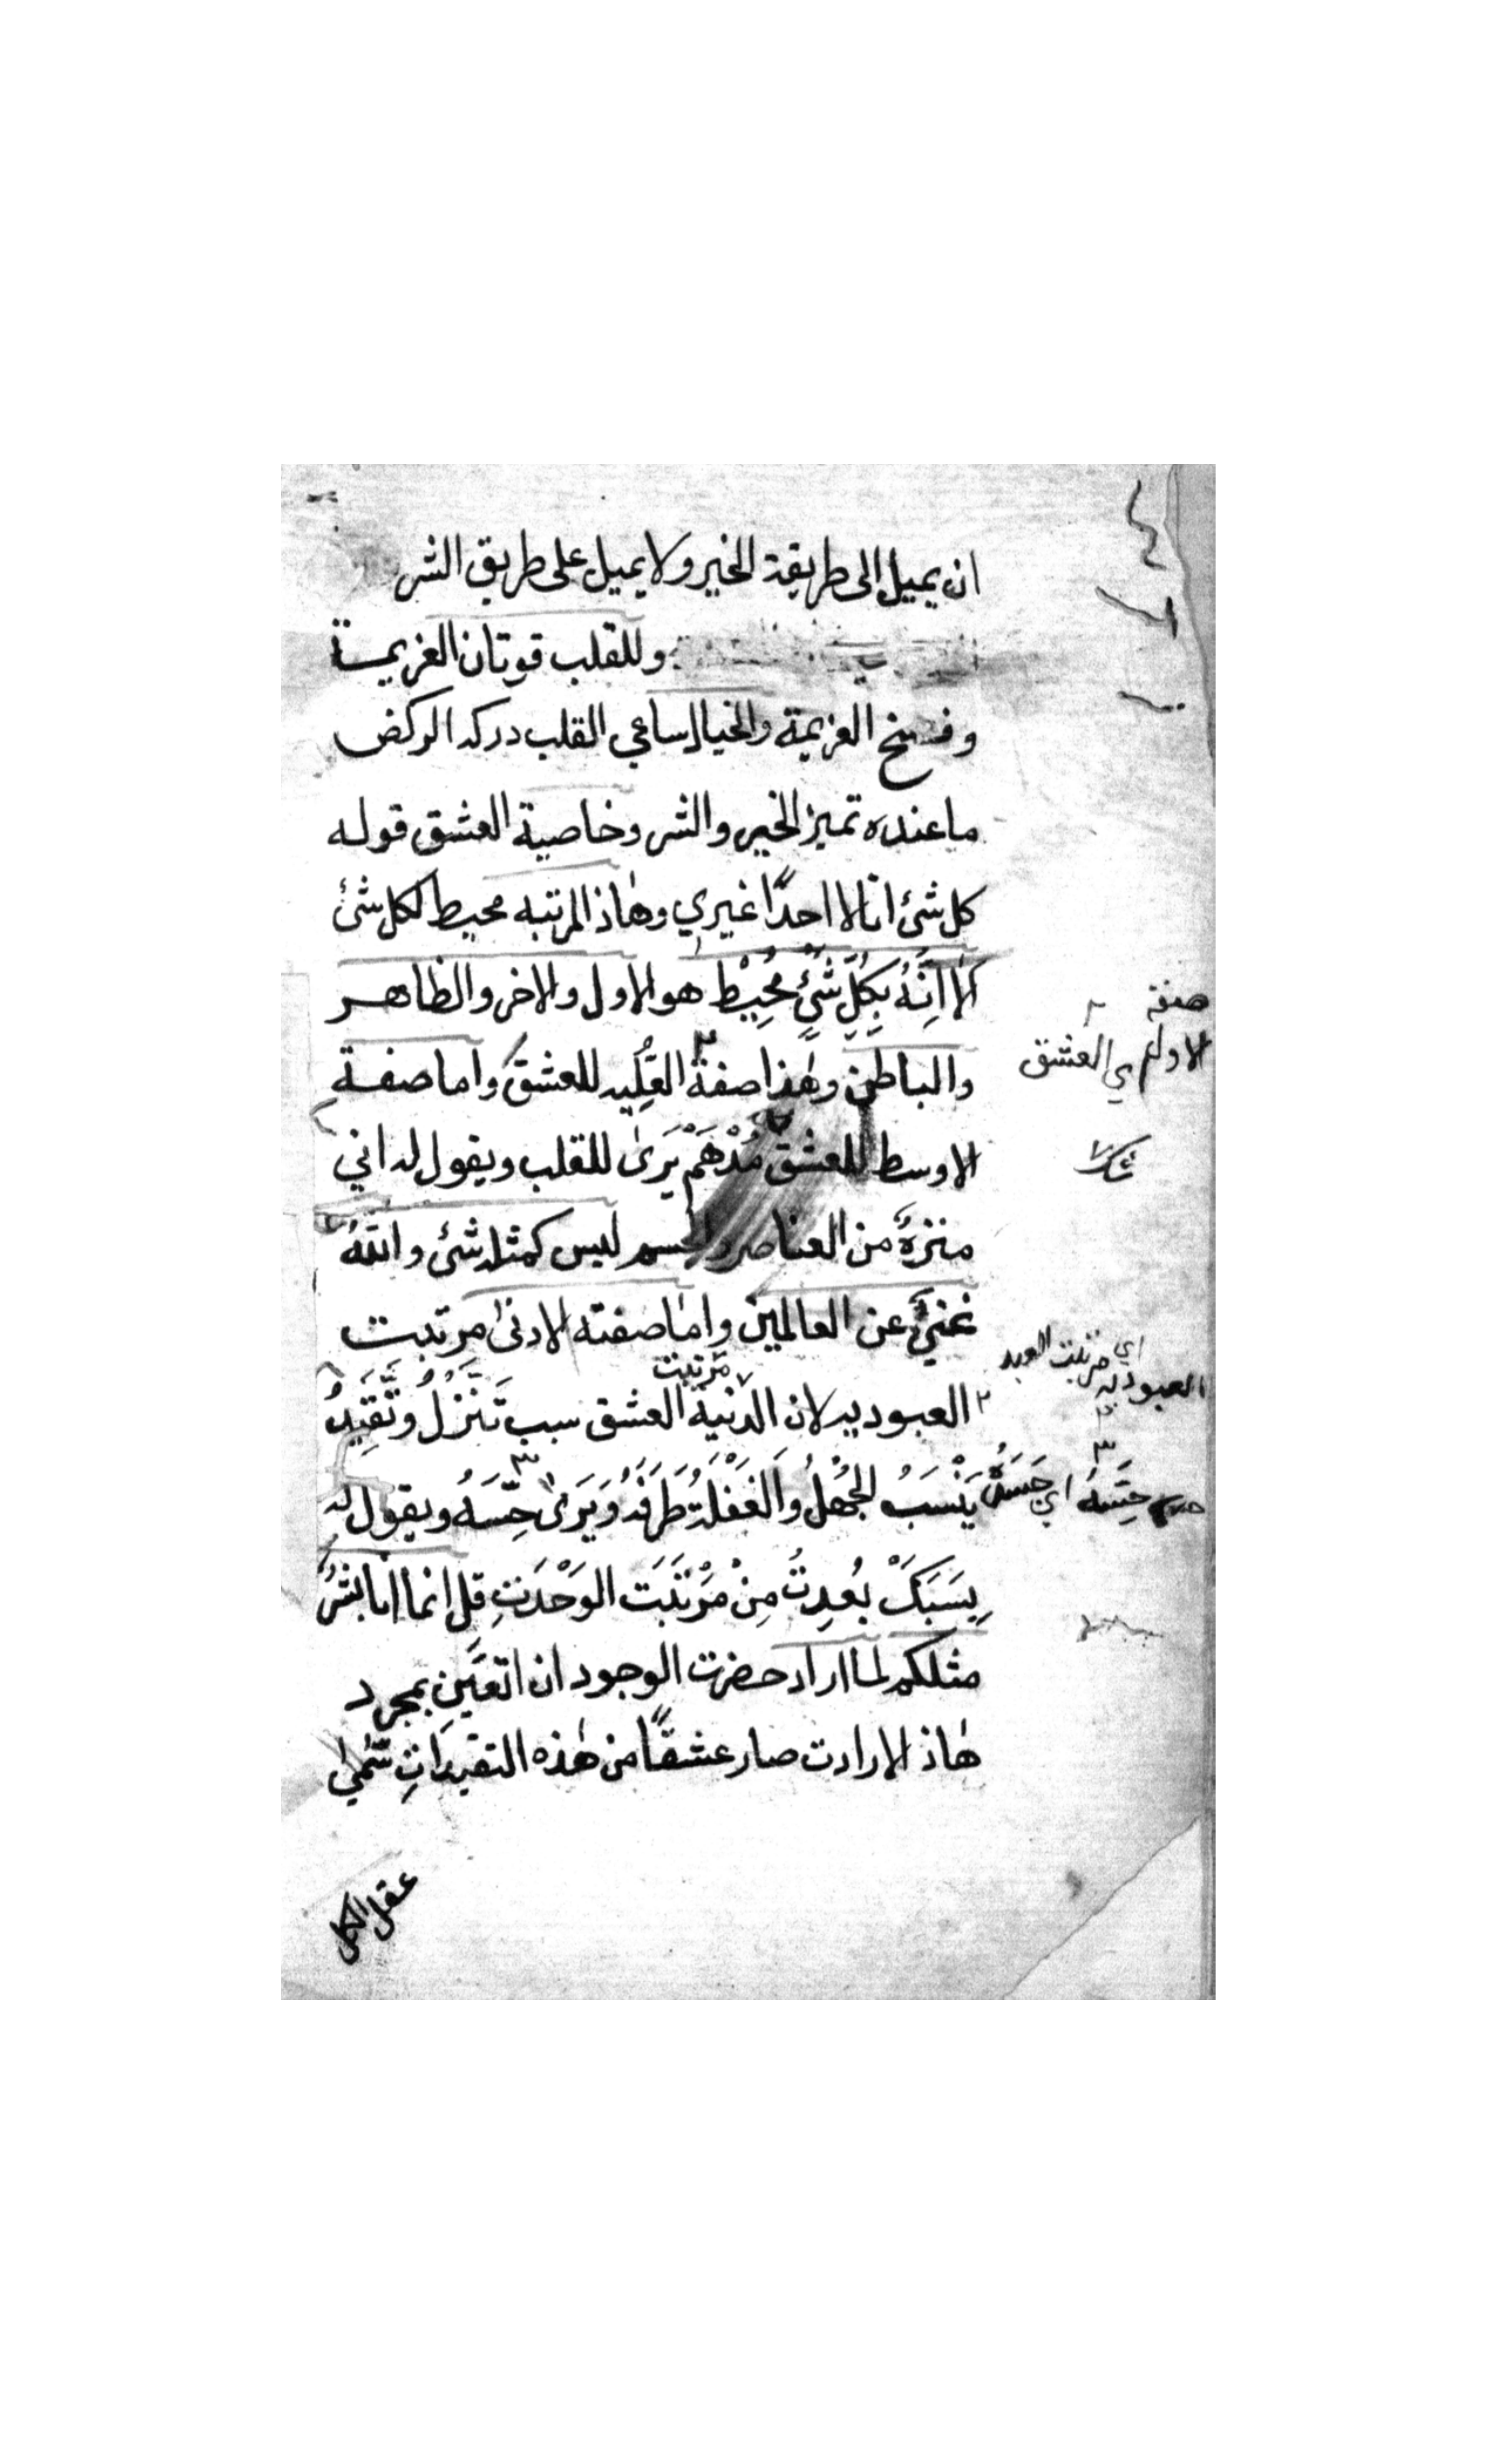 ان يميل الى طريقة الخير ولا يميل على طريق الشر
وللقلب قوتان العزيمة
وفسخ العزيمة والخيال ساعي القلب دركه الركض
ما عنده تميز الخير والشر وخاصية العشق قوله
كل شئ انا لا احدًا غيري وهٰاذ المرتبه محيط لكل شئ
اَلا اِنَّهُ بِكُلِّ شَيْءٍ مُحِيْطٌ هو الاول والاخر والظاهر
والباطن وهٰذا صفة العُلِيد للعشق واما صفة
الاوسط للعشق مُدْهَمْ يَرَىٰ للقلب ويقول له اني
منزهٌ من العناصر والجسم ليس كمثله شئ والله
غنيٌّ عن العالمين واما صفته الادنىٰ مرتبت
العبوديه لان الدنية العشق سبب تَنَزُّلُ وتَّقَيِّدُ
مرتبت
يَنْسَبُ الجُهْلُ وَالغَفْلَةُ طَرَفَهُ وَيَرَىٰ حِسَّهُ ويقول له
بِسَبَبَكَ بُعِدِتُ مِنْ مَرْتَبَت الوَحْدَتِ قل انما انا بشرٌ
مثلكم لما اراد حضرت الوجود ان اتعيّن بمجرد
هٰاذ الارادت صار عشقًا من هٰذه التقيدَاتِ سُمّيٰ
عقل الكل
صفة
الاولى العشق
اي مرتبت العبد
العبوديه
حِسَّهُ اي حَسَّهُ